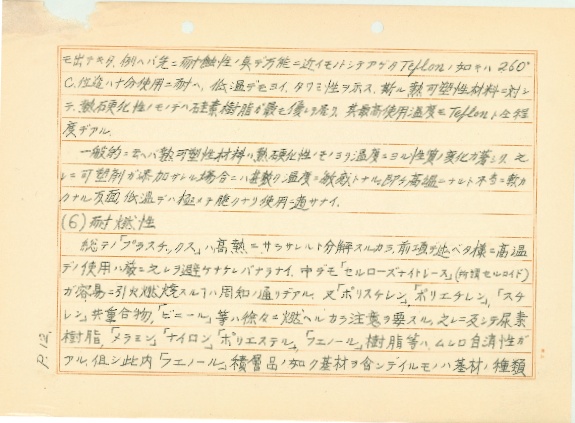 モ出テキタ、例ヘバ先ニ耐触性ノ点デ万能ニ近イモノトシテアゲタTeflonノ如キハ260°
C.位迄ハ十分使用ニ耐ヘ、低温デモヨイ、タワミ性ヲ示ス、斯ル熱可塑性材料ニ対シ
テ、熱硬化性ノモノデハ硅素樹脂ガ最モ優レ居リ、其最高使用温度モTeflonト仝程
度デアル、
一般的ニ云ヘバ熱可塑性材料ハ熱硬化性ノモノヨリ温度ニヨル性質ノ変化ガ著シク、之
レニ可塑剤ガ添加サレル場合ニハ甚敷ク温度ニ敏感トナル、即チ高温ニナルト不当ニ軟カ
クナル反面、低温デハ極メテ脆クナリ使用ニ適サナイ、
(6) 耐燃性
総テノ「プラスチックス」ハ高熱ニサラサレルト分解スルカラ、前項デ述ベタ様ニ高温
デノ使用ハ厳ニ之レヲ避ケナケレバナラナイ、中デモ「セルローズナイトレース」(所謂セルロイド)
ガ容易ニ引火燃焼スル丁ハ周知ノ通リデアル、又「ポリスチレン」、「ポリエチレン」、「スチ
レン」共重合物、「ビニール」等ハ徐々ニ燃ヘルカラ注意ヲ要スル、之レニ反シテ尿素
樹脂、「メラミン」、「ナイロン」、「ポリエステル」、「フエノール」樹脂等ハ、ムシロ自消性ガ
アル、但シ此内「フエノール」積層品ノ如ク基材ヲ含ンデイルモノハ基材ノ種類
P.12.